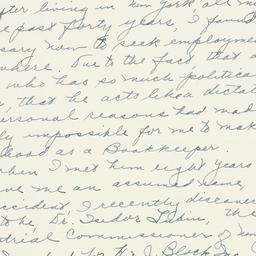 after living in New York, all m
e past forty years, I found
sary now to seek employme
where. Due to the fact, that
who has so much politica
, that he acts like a dictat
ersonal reasons had mad
ly impossible for me to mak
hood as a Bookkeeper.
when I met him eight years
ave me an assumed name,
accident, I recently discover
to be, Dr. Isador Lubin, the
trial Commissioner of
for H. J. Block Inc